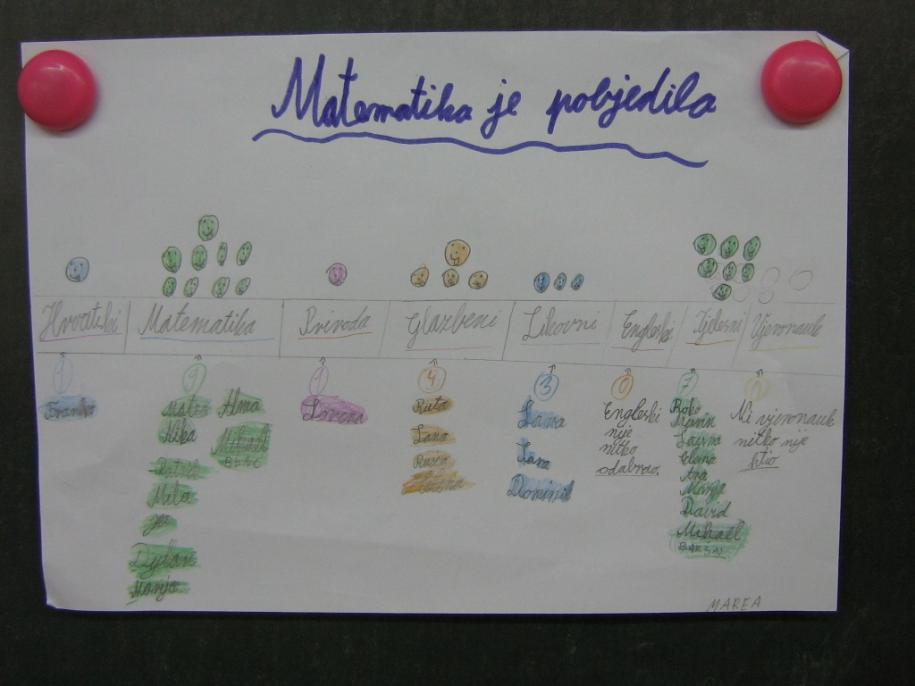 Matematika je pobjedila
Hrvatski Matematika Priroda Glazbeni Likovni Engleski Tjelesni Vjeronauk
1 9 1 4 3 0 7 0
Franka
Mateo Alma
Nika Mihael
Patrik
Mila
Dylan
Manja
Lovena
Ruta
Lana
Laura
Lana
Dominik
Engleski
nije
nitko
odabrao.
Roko
Laura
Ana
Manja
David
Mihael
BAKSAJ
Ni vjeronauk
nitko nije
htio
MAREA